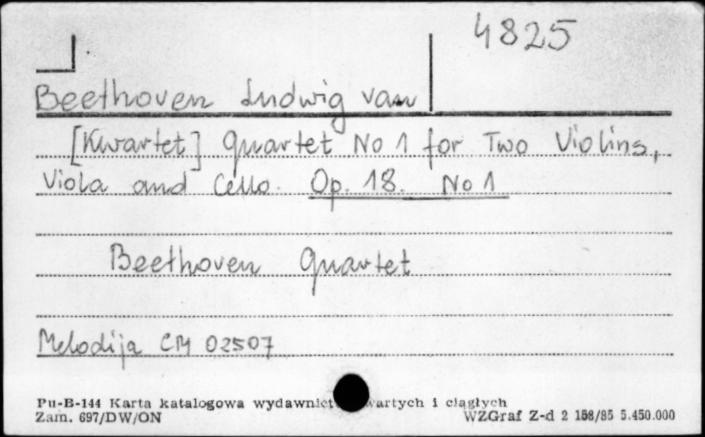 4825
Beethoven Ludwig van
[Kwartet] Quartet No 1 for Two Violins,
Viola and Cello. Op. 18. No 1
Beethoven Quartet
Melodija CM 02507
Pu-B-144 Karta katalogowa wydawnict wartych i ciągłych
Zam. 697/DW/ON
WZGraf Z-d 2 158/85 5.450.000